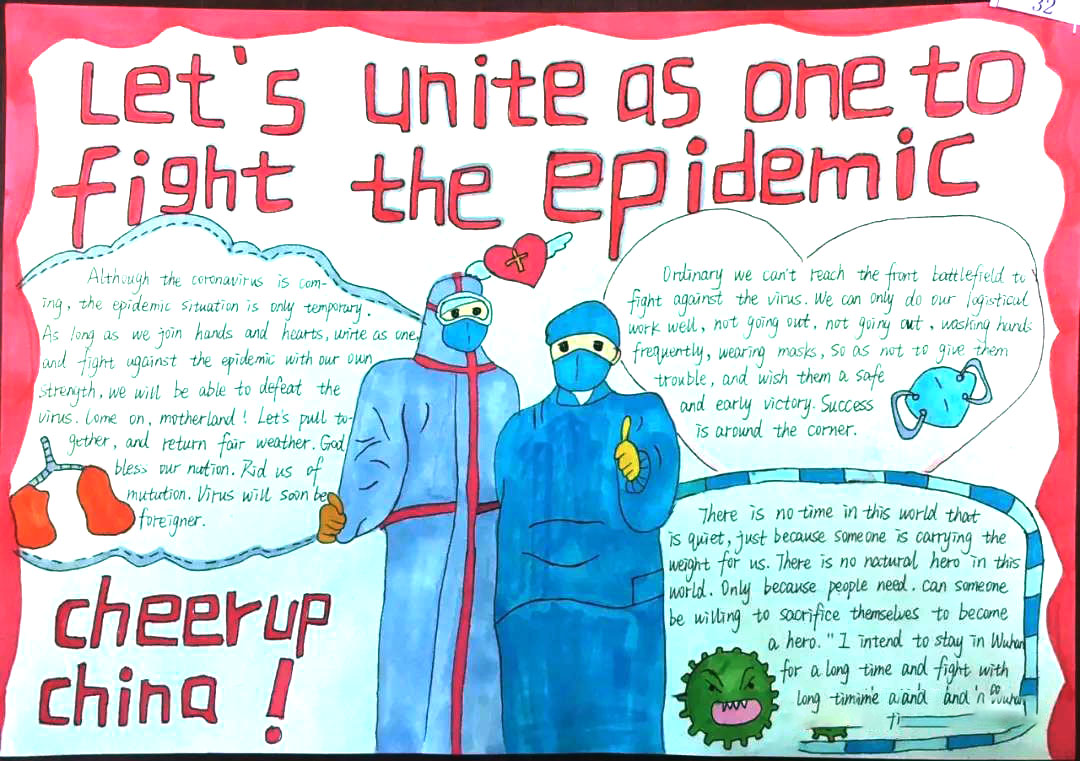 32
Let's unite as one to
fight the epidemic
Although the coronavirus is com-
ing, the epidemic situation is only temporary.
As long as we join hands and hearts, unite as one,
and fight against the epidemic with our own
strength, we will be able to defeat the
virus. Come on, motherland! Let's pull to-
gether, and return fair weather. God
bless our nation. Rid us of
mutution. Virus will soon be
foreigner.
Ordinary we can't reach the front battlefield to
fight against the virus. We can only do our logistical
work well, not going out, not going out, washing hands
frequently, wearing masks, so as not to give them
trouble, and wish them a safe
and early victory. Success
is around the corner.
There is no time in this world that
is quiet, just because someone is carrying the
weight for us. There is no natural hero in this
world. Only because people need. can someone
be willing to sacrifice themselves to become
a hero. "I intend to stay in Wuhan
for a long time and fight with
long
cheer up
china!